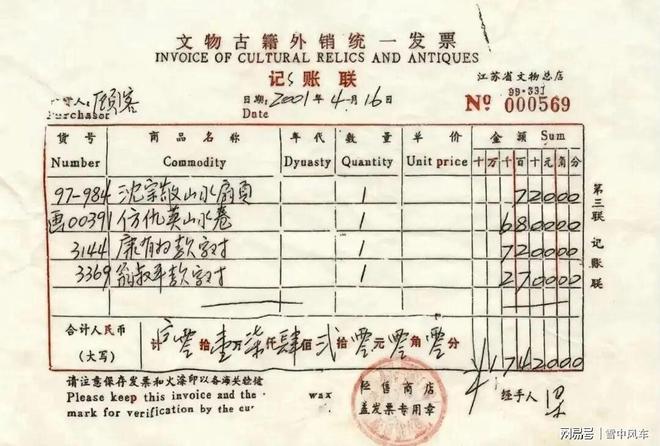 文物古籍外销统一发票
INVOICE OF CULTURAL RELICS AND ANTIQUES
记账联
江苏省文物总店
99·331
购买人: 顾客 日期: 2001年4月16日 No 000569
Purchaser Date
货号 商品名称 年代 数量 单价 金额 Sum
Number Commodity Dyuasty Quantity Unit price 十万千百十元角分
97-984 沈宗敬山水扇頁 1 72000
画00391 仿仇英山水卷 1 680000
3144 康有为款字对 1 720000
3369 翁叔平款字对 1 270000
合计人民币
(大写)
计 零拾壹万柒仟肆佰贰拾零元零角零分 ¥1742000
第三联 记账联
请注意保存发票和火漆印以备海关验
Please keep this invoice and the wax
mark for verification by the cu
经售商店
盖发票专用章
经手人 梁
网易号 | 雪中风车